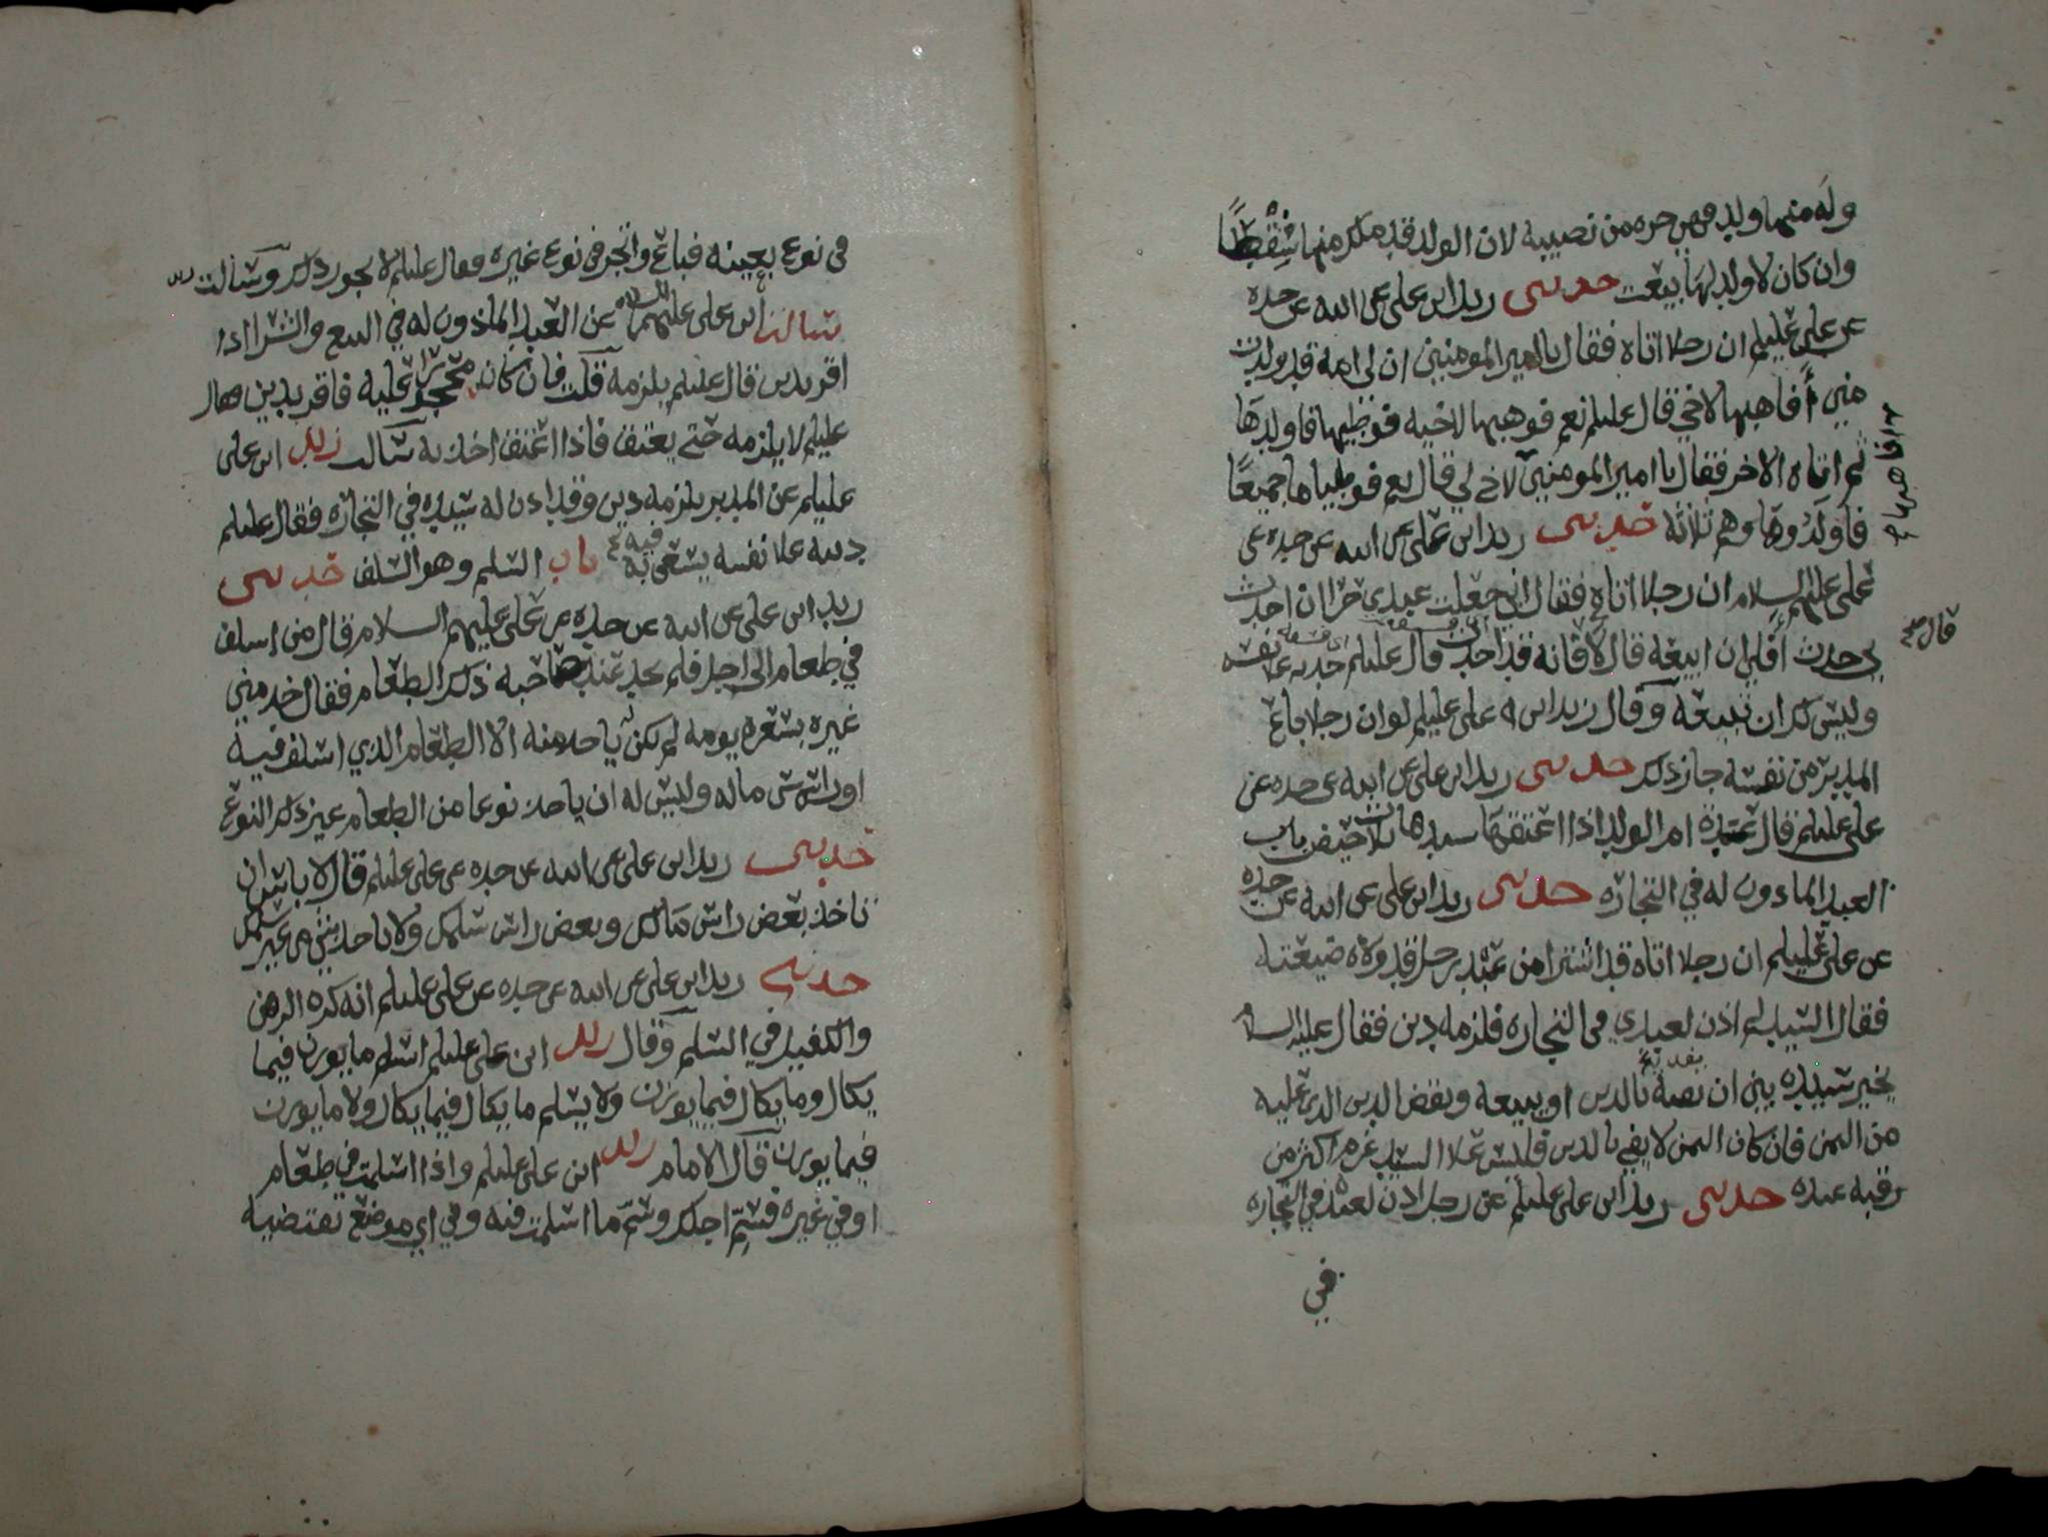 وله منها ولد فهي حره من نصيبه لان الولد قد ملك منها شقصًا
وان كان لا ولد لها بيعت حدثنى زيد ابن على عن ابيه عن جده
عن على عليلم ان رجلا اتاه فقال يا امير المومنين ان لي امة قد ولدت
مني أفاهبها لاخي قال عليلم نعم فوهبها لاخيه فوطيها فاولدها
ثم اتاه الاخر فقال يا امير المومنين لاخ لي قال نعم فوطياها جميعًا
فاولدوها وهم ثلاثة حدثنى زيد ابن على عن ابيه عن جده عن
على عليهم السلام ان رجلا اتاه فقال اني جعلت عبدي حرا ان احدث
بي حدث أفلي ان ابيعه قال لا فانه قد احدث قال عليلم حدثه على نفسه
قال
وليس لك ان تبيعه وقال زيد ابن على عليلم لو ان رجلا باع
المدبر من نفسه جاز ذلك حدثنى زيد ابن على عن ابيه عن جده عن
على عليلم قال عدة ام الولد اذا اعتقها سيدها ثلاث حيض باب
العبد الماذون له في التجاره حدثنى زيد ابن على عن ابيه عن جده
عن على عليلم ان رجلا اتاه قد اشترا من عبد رجل قد ولاه ضيعته
فقال السيد لم اذن لعبدي في التجاره فلزمه دين فقال عليه السلام
يخير سيده بين ان يفديه بالدين او يبيعه ويقض الدين الذي عليه
من الثمن فان كان الثمن لا يفي بالدين فليس علا السيد غرم اكثر من
رقبة عبده حدثنى زيد ابن على عليلم عن رجل اذن لعبده في التجاره
في
في نوع بعينه فباع واتجر في نوع غيره فقال عليلم لا يجوز ذلك وسالت
سالت ابن على عليهما السلام عن العبد الماذون له في البيع والشرا اذا
اقر بدين قال عليلم يلزمه قلت فان كان محجورا عليه فاقر بدين فقال
عليلم لا يلزمه حتى يعتق فاذا اعتق اخذ به سالت زيد ابن على
عليلم عن المدبر يلزمه دين وقد اذن له سيده في التجاره فقال عليلم
دينه علا نفسه يسعى فيه باب السلم وهو السلف حدثنى
زيد ابن على عن ابيه عن جده عن على عليهم السلام قال من اسلف
في طعام الى اجل فلم يجد عند صاحبه ذلك الطعام فقال خذ مني
غيره بسعر يومه لم يكن له ياخذ منه الا الطعام الذي اسلف فيه
او راس ماله وليس له ان ياخذ نوعا من الطعام غير ذلك النوع
حدثنى زيد ابن على عن ابيه عن جده عن على عليلم قال لا باس ان
تاخذ بعض راس مالك وبعض راس سلمك ولا تاخذ شي من غير سلمك
حدثني زيد ابن على عن ابيه عن جده عن على عليلم انه كره الرهن
والكفيل في السلم وقال زيد ابن على عليلم اسلم ما يوزن فيما
يكال وما يكال فيما يوزن ولا يسلم ما يكال فيما يكال ولا ما يوزن
فيما يوزن قال الامام زيد ابن على عليلم واذا اسلمت في طعام
او في غيره فسم اجلك وسم ما اسلمت فيه وفي اي موضع تقتضيه